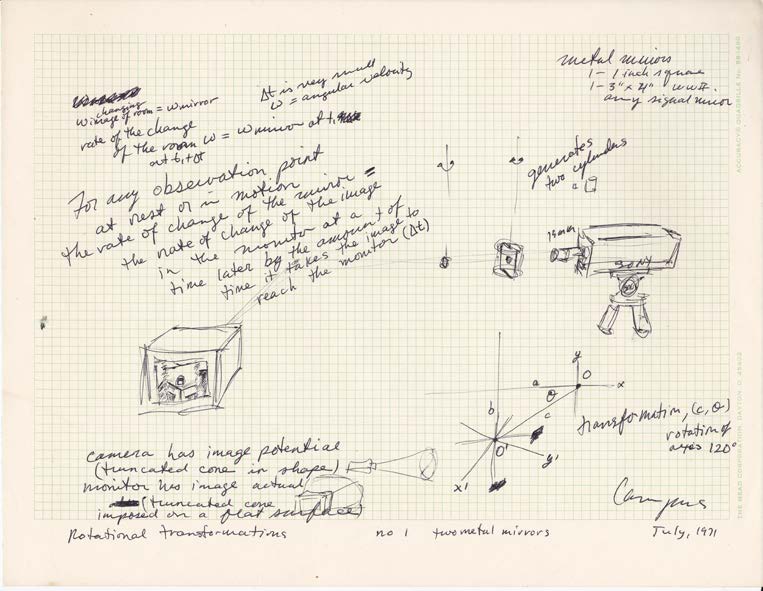 changing
ω image of room = ω mirror
rate of the change
of the room ω = ω mirror at t₁
at t₁+Δt
Δt is very small
ω = angular velocity
metal mirrors
1 - 1 inch square
1 - 3" x 4" WWII
army signal mirror
For any observation point
at rest or in motion
the rate of change of the mirror =
the rate of change of the image
in the monitor at a
time later by the amount of
time it takes the image to
reach the monitor (Δt)
generates
two cylenders
a
15mm
SONY
y
O
x
a
θ
b
c
O'
y'
x'
transformation, (c, θ)
rotation of
axes 120°
camera has image potential
(truncated cone in shape)
monitor has image actual
(truncated cone
imposed on a flat surface)
Campus
Rotational transformations no 1 two metal mirrors July, 1971
ACCURACY® QUADRILLE No.
THE MEAD CORPORATION, DAYTON, O. 45402